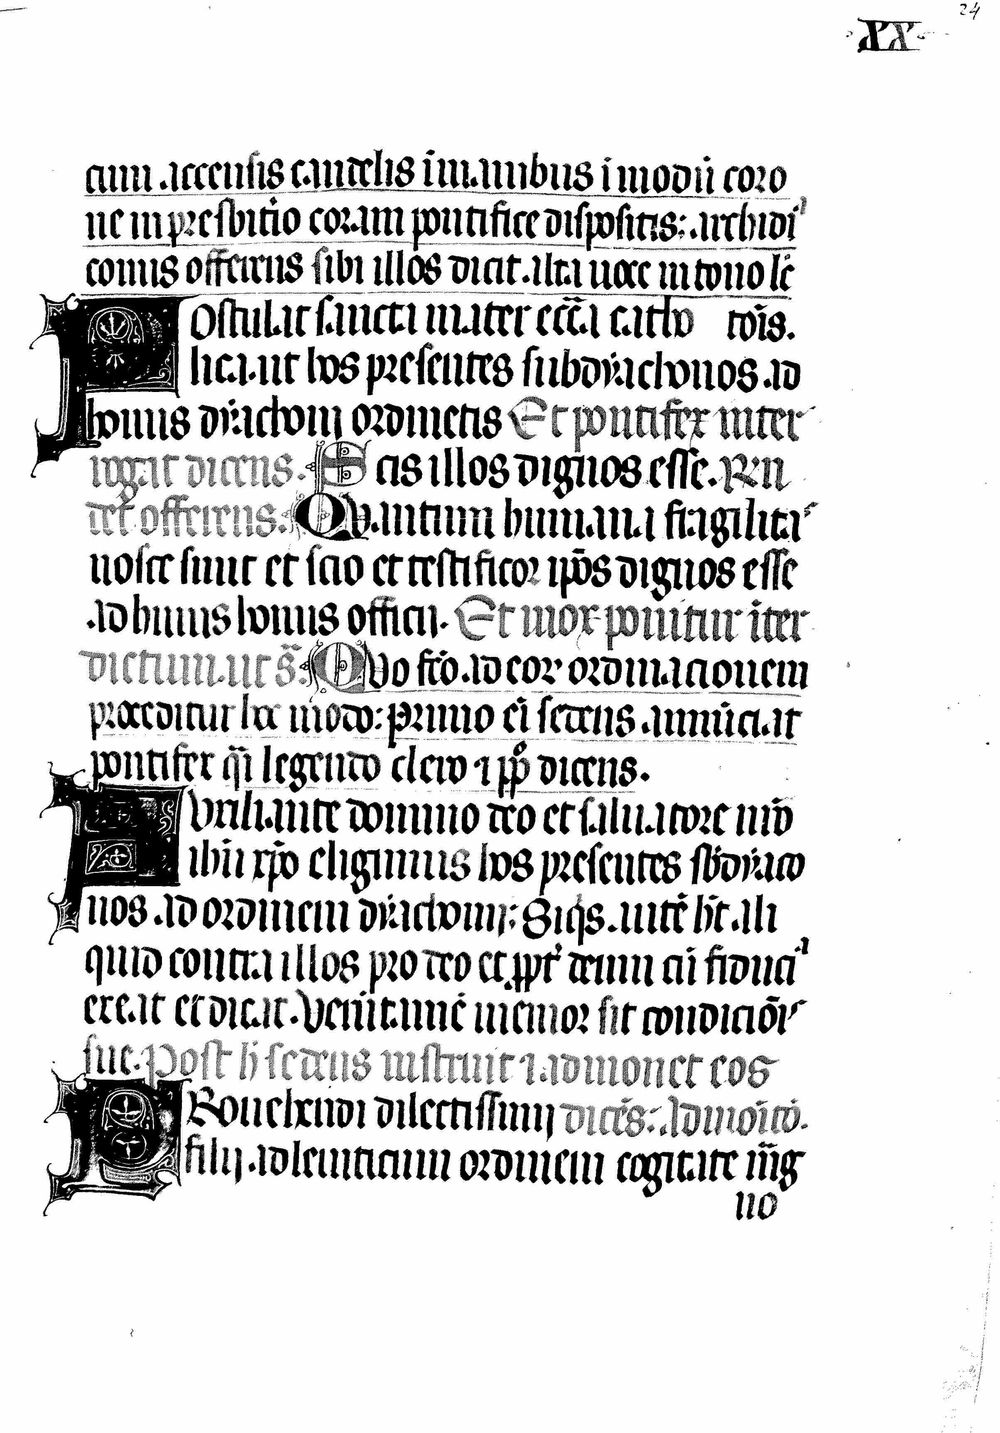 24
XX
cum accensis candelis ī manibus ī modū coro
ne in presbit̄io coram pontifice dispositis: archidi
conus offerens sibi illos dicit alta uoce in tono lc̄
Postulat sancta mater ecc̄a catho tōis.
lica. ut hos presentes subdiachonos ad
honus diachonij ordinetis Et pontifex inter
rogat dicens. Scis illos dignos esse. Rn
det offerens. Quantum humana fragilita
nosce sinit et scio et testificor ip̄os dignos esse
ad huius honus officij. Et mox ponitur īter
dictum. ut s̄. Quo fc̄o. ad eor ordinacionem
proceditur hoc modo: primo eī sedens annūciat
pontifex q̄i legendo clero ⁊ pp̄o dicens.
Auxiliante domino deo et saluatore nr̄o
ihū xp̄o eligimus hos presentes sb̄diaco
nos ad ordinem diachonij: Siqs autē h̄t ali
quid contra illos pro deo et ppt̄ deum cū fiduci
exeat et dicat. Uerūtamē memor sit condiciōi
sue. Post h̄ sedens instruit ⁊ admonet eos
Prouehendi dilectissimij dicēs: Admoīcō.
filij. ad leuiticum ordinem cogitate mag
no